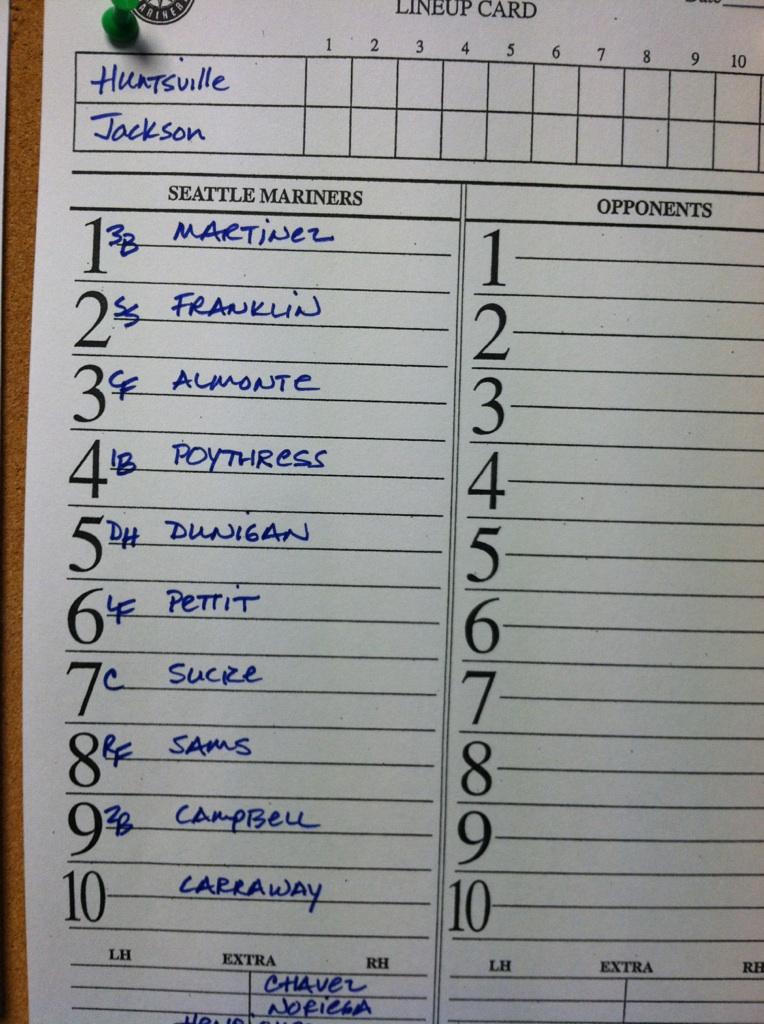 LINEUP CARD
1 2 3 4 5 6 7 8 9 10
Huntsville
Jackson
SEATTLE MARINERS OPPONENTS
1 3B MARTINEZ 1
2 SS FRANKLIN 2
3 CF ALMONTE 3
4 1B POYTHRESS 4
5 DH DUNIGAN 5
6 LF PETTIT 6
7 C SUCRE 7
8 RF SAMS 8
9 2B CAMPBELL 9
10 CARRAWAY 10
LH EXTRA RH LH EXTRA RH
CHAVEZ
NORIEGA